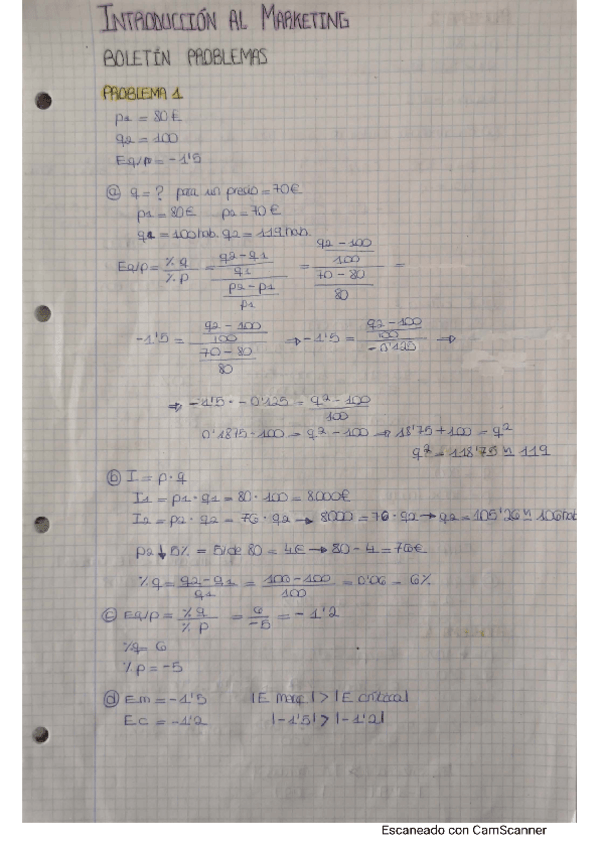 INTRODUCCIÓN AL MARKETING
BOLETÍN PROBLEMAS
PROBLEMA 1
p1 = 80€
q1 = 100
Eq/p = -1'5
ⓐ q = ? para un precio = 70€
p1 = 80€ p2 = 70€
q1 = 100 hab. q2 = 119 hab.
Eq/p = %q / %p = ((q2 - q1) / q1) / ((p2 - p1) / p1) = ((q2 - 100) / 100) / ((70 - 80) / 80) =
-1'5 = ((q2 - 100) / 100) / ((70 - 80) / 80) ⇒ -1'5 = ((q2 - 100) / 100) / -0'125 ⇒
⇒ -1'5 · -0'125 = (q2 - 100) / 100
0'1875 · 100 = q2 - 100 → 18'75 + 100 = q2
q2 = 118'75 ≃ 119
ⓑ I = p · q
I1 = p1 · q1 = 80 · 100 = 8000€
I2 = p2 · q2 = 76 · q2 → 8000 = 76 · q2 → q2 = 105'26 ≃ 106 hab
p2 ↓ 5% = 5% de 80 = 4€ → 80 - 4 = 76€
%q = (q2 - q1) / q1 = (106 - 100) / 100 = 0'06 = 6%
ⓒ Eq/p = %q / %p = 6 / -5 = -1'2
%q = 6
%p = -5
ⓓ Em = -1'5 |E marg| > |E crítica|
Ec = -1'2 |-1'5| > |-1'2|
Escaneado con CamScanner